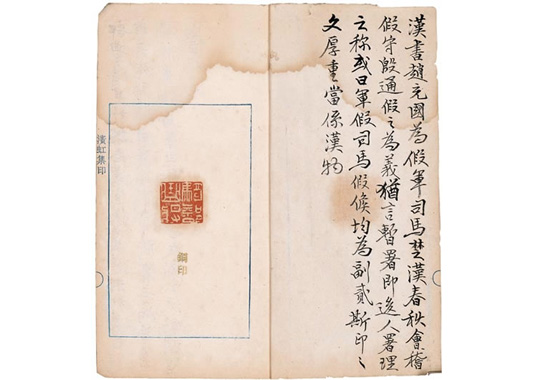 漢書趙充國為假軍司馬楚漢春秋會稽
假守殷通假之為義猶言暫署即後人署理
之称或曰軍假司馬假候均為副貳斯印之
文厚重當係漢物
銅印
虹集印